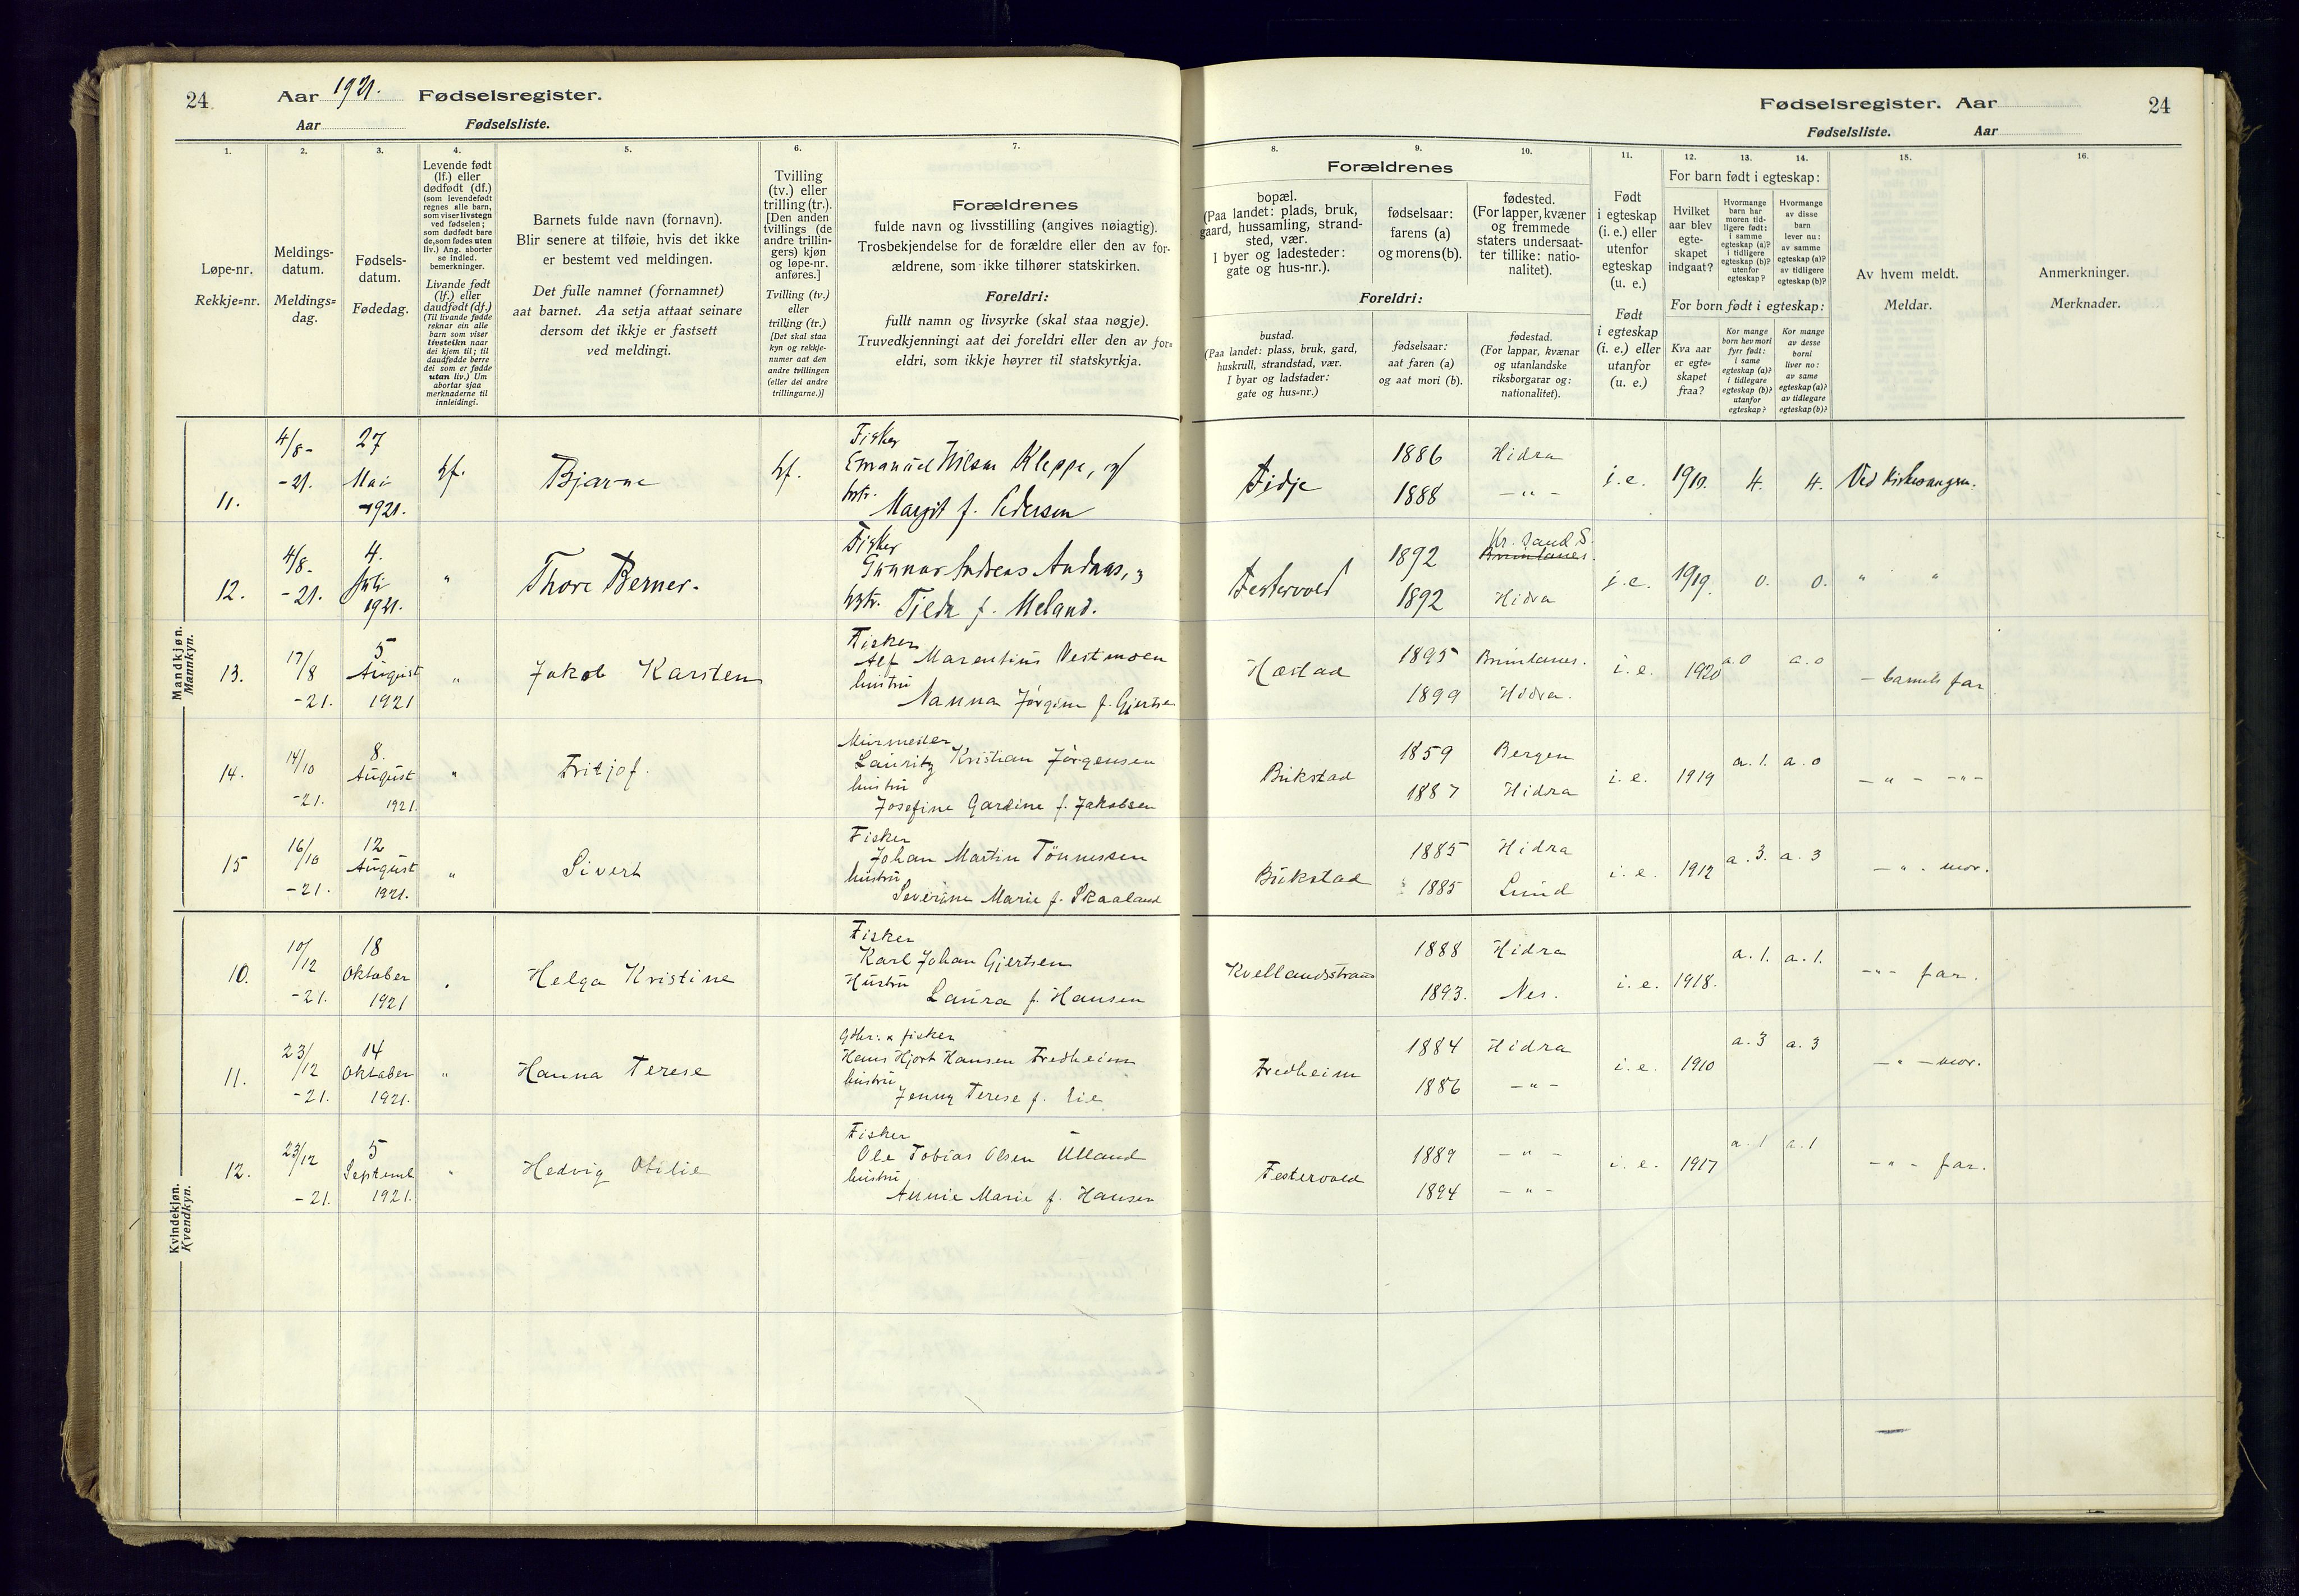 24
Aar 1921. Fødselsregister.
Aar Fødselsliste.
Fødselsregister. Aar
Fødselsliste. Aar
24
1.
Løpe-nr.
Rekkje=nr.
2.
Meldings-
datum.
Meldings=
dag.
3.
Fødsels-
datum.
Fødedag.
4.
Levende født
(lf.) eller
dødfødt (df.)
(som levendefødt
regnes alle barn,
som viser livstegn
ved fødselen;
som dødfødt bare
de, som fødes uten
liv.) Ang. aborter
se indled.
bemerkninger.
Livande født
(lf.) eller
daudfødt (df.)
(Til livande fødde
reknar ein alle
barn som viser
livsteikn naar
dei kjem til; til
daudfødde berre
dei som er fødde
utan liv.) Um
abortar sjaa
merknaderne til
innleidingi.
5.
Barnets fulde navn (fornavn).
Blir senere at tilføie, hvis det ikke
er bestemt ved meldingen.
Det fulle namnet (fornamnet)
aat barnet. Aa setja attaat seinare
dersom det ikkje er fastsett
ved meldingi.
6.
Tvilling
(tv.) eller
trilling (tr.).
[Den anden
tvillings (de
andre trillin-
gers) kjøn
og løpe-nr.
anføres.]
Tvilling (tv.)
eller
trilling (tr.)
[Det skal staa
kyn og rekkje-
numer aat den
andre tvillingen
(eller dei andre
trillingarne.)]
7.
Forældrenes
fulde navn og livsstilling (angives nøiagtig).
Trosbekjendelse for de forældre eller den av for-
ældrene, som ikke tilhører statskirken.
Foreldri:
fullt namn og livsyrke (skal staa nøgje).
Truvedkjenningi aat dei foreldri eller den av for=
eldri, som ikkje høyrer til statskyrkja.
8.
Forældrenes
bopæl.
(Paa landet: plads, bruk,
gaard, hussamling, strand-
sted, vær.
I byer og ladesteder:
gate og hus-nr.).
Foreldri:
bustad.
(Paa landet: plass, bruk, gard,
huskrull, strandstad, vær.
I byar og ladstader:
gate og hus=nr.)
9.
fødselsaar:
farens (a)
og morens (b).
fødselsaar:
aat faren (a)
og aat mori (b).
10.
fødested.
(For lapper, kvæner
og fremmede
staters undersaat-
ter tillike: natio-
nalitet).
fødestad.
(For lappar, kvænar
og utanlandske
riksborgarar og:
nationalitet).
11.
Født
i egteskap
(i. e.) eller
utenfor
egteskap
(u. e.)
Født
i egteskap
(i. e.) eller
utanfor
(u. e.)
12.
For barn født i egteskap:
Hvilket
aar blev
egte-
skapet
indgaat?
For born født i egteskap:
Kva aar
er egte=
skapet
fraa?
13.
Hvormange
barn har
moren tid-
ligere født:
i samme
egteskap (a)?
i tidligere
egteskap (b)?
utenfor
egteskap?
Kor mange
born hev mori
fyrr født:
i same
egteskap (a)?
i tidlegare
egteskap (b)?
utanfor
egteskap?
14.
Hvormange
av disse
barn
lever nu:
av samme
egteskap (a)?
av tidligere
egteskap (b)?
Kor mange
av desse
borni
liver no:
av same
egteskap (a)?
av tidlegare
egteskap (b)?
15.
Av hvem meldt.
Meldar.
16.
Anmerkninger.
Merknader.
Mandkjøn.
Mannkyn.
11. 4/8- -21. 27 Mai -1921. lf. Bjarne lf.
Fisker
Emanuel Nilsen Kleppe, og
hstr.
Margit f. Pedersen
Fidje 1886 Hidra i. e. 1910. 4. 4.
1888 —"—
12. 4/8- -21. 4. Juli 1921. " Thore Berner.
Fisker
Gunnar Andreas Andaas,
hstr. f. Meland.
Festervold 1892 Kr. sand S.
1892 Hidra i. e. 1919. 0. 0. " "
13. 17/8 -21. 5 August 1921 " Jakob Karsten
Fisker
Alf Marentius Vestmoen
hustru
Nanna Jørgine f. Gjertsen
1895
1899 Hidra. i. e. 1920 a. 0 a. 0 - barnets far
14. 14/10 -21. 8. August 1921. " Fritjof.
Murmester
Lauritz Kristian Jørgensen
hustru
Josefine Gardine f. Jakobsen
Bukstad 1859 Bergen
1887 Hidra i. e. 1919 a. 1. a. 0 -"- -"-
15 16/10 -21. 12 August 1921. " Sivert
Fisker
Johan Martin Tønnessen
hustru
Severine Marie f. Skaaland
Bukstad 1885 Hidra
1885 Lund i. e. 1912 a. 3. a. 3 -"- mor.
Kvindekjøn.
Kvendkyn.
10. 10/12 -21. 18 Oktober 1921 " Helga Kristine
Fisker
Karl Johan Gjertsen
Hustru
Laura f. Hansen
Kvellandsstrand 1888 Hidra
1893. Nes. i. e. 1918. a. 1. a. 1. -"- far.
11. 23/12 -21. 14 Oktober 1921. " Hanna Terese
Gbr. & fisker
Hans Hjort Hansen Fredheim
hustru
Jenny Terese f. Lie
Fredheim 1884 Hidra
1886 —"— i. e. 1910 a. 3 a. 3 -"- mor.
12. 23/12 -21. 5 Septemb. 1921. " Hedvig Otilie
Fisker
Ole Tobias Olsen Ulland
hustru
Annie Marie f. Hansen
Festervold 1889 —"—
1894 —"— i. e. 1917 a. 1 a. 1 -"- far.